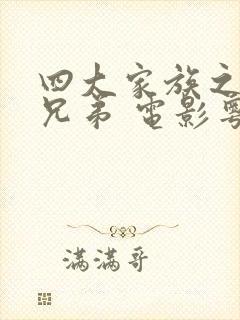 四大家族之
兄弟 電影粵
满满哥